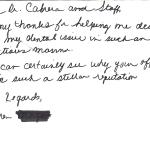 Dr. Cabera and Staff
my thanks for helping me de
my dental issue in such an
tious manner.
can certainly see why your off
such a stellar reputation
Regards,